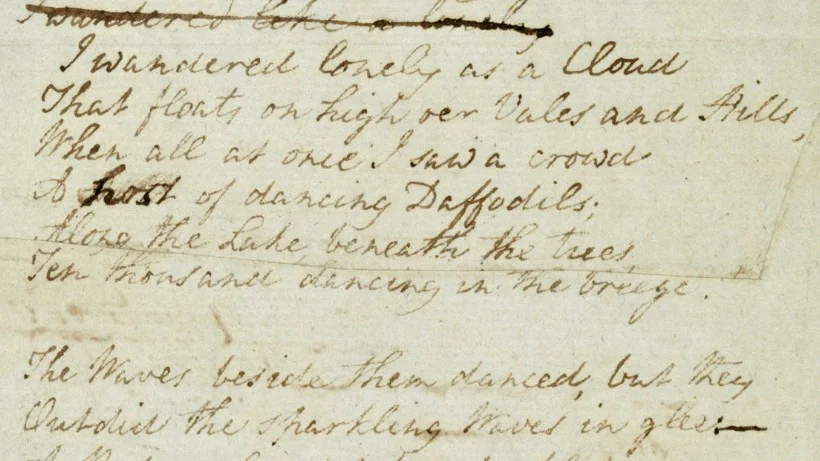 I wandered like a lonely
I wandered lonely as a Cloud
That floats on high oer Vales and Hills,
When all at once I saw a crowd
A host of dancing Daffodils;
Along the Lake, beneath the trees
Ten thousand dancing in the breeze.
The Waves beside them danced, but they
Outdid the sparkling Waves in glee:—